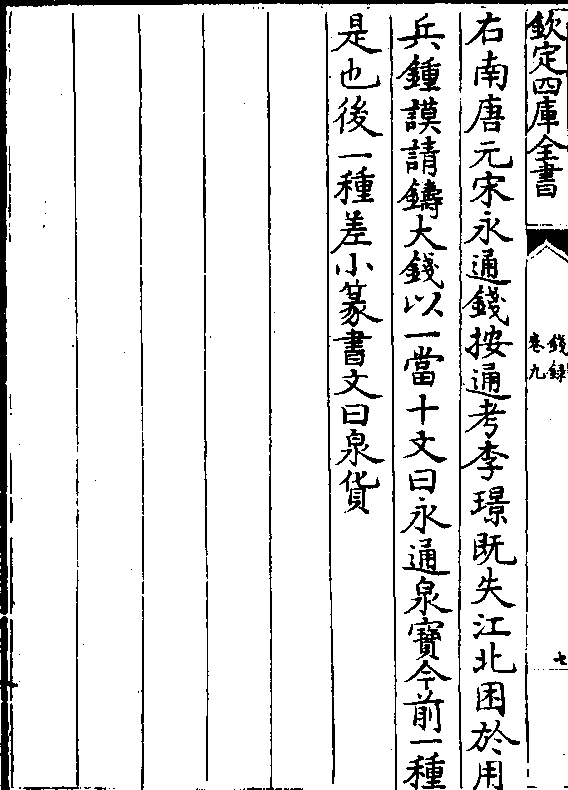 欽定四庫全書
錢録
卷九
七
右南唐元宋永通錢按通考李璟既失江北困於用
兵鍾謨請鑄大錢以一當十文曰永通泉寶今前一種
是也後一種差小篆書文曰泉貨